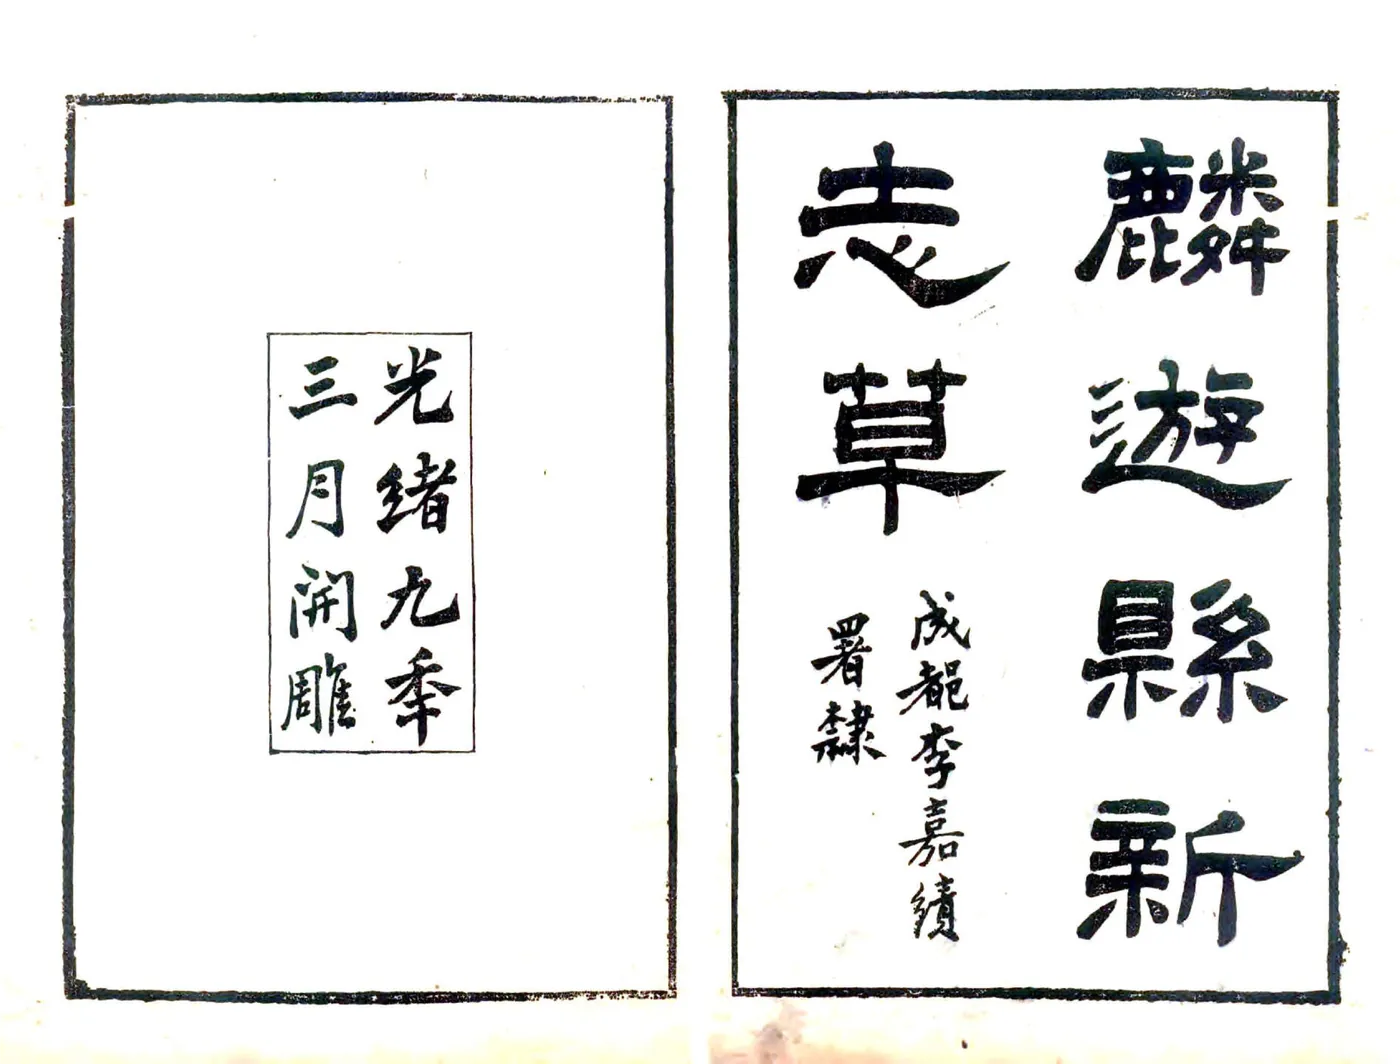 麟遊縣新
志草
成都李嘉績
署隸
光緒九秊
三月開雕